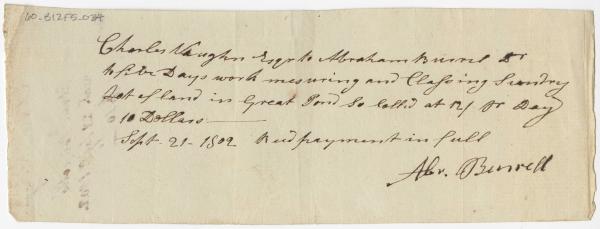 60-B12F5-034
Charles Vaughn Esqr to Abraham Burrel Dr
to five Days work mesuring and Classing Sundry
Lot of land in Great Pond So Calld at 12/ Pr Day
10 Dollars
Sept 21 - 1802 Recd payment in full
Abr. Burrell